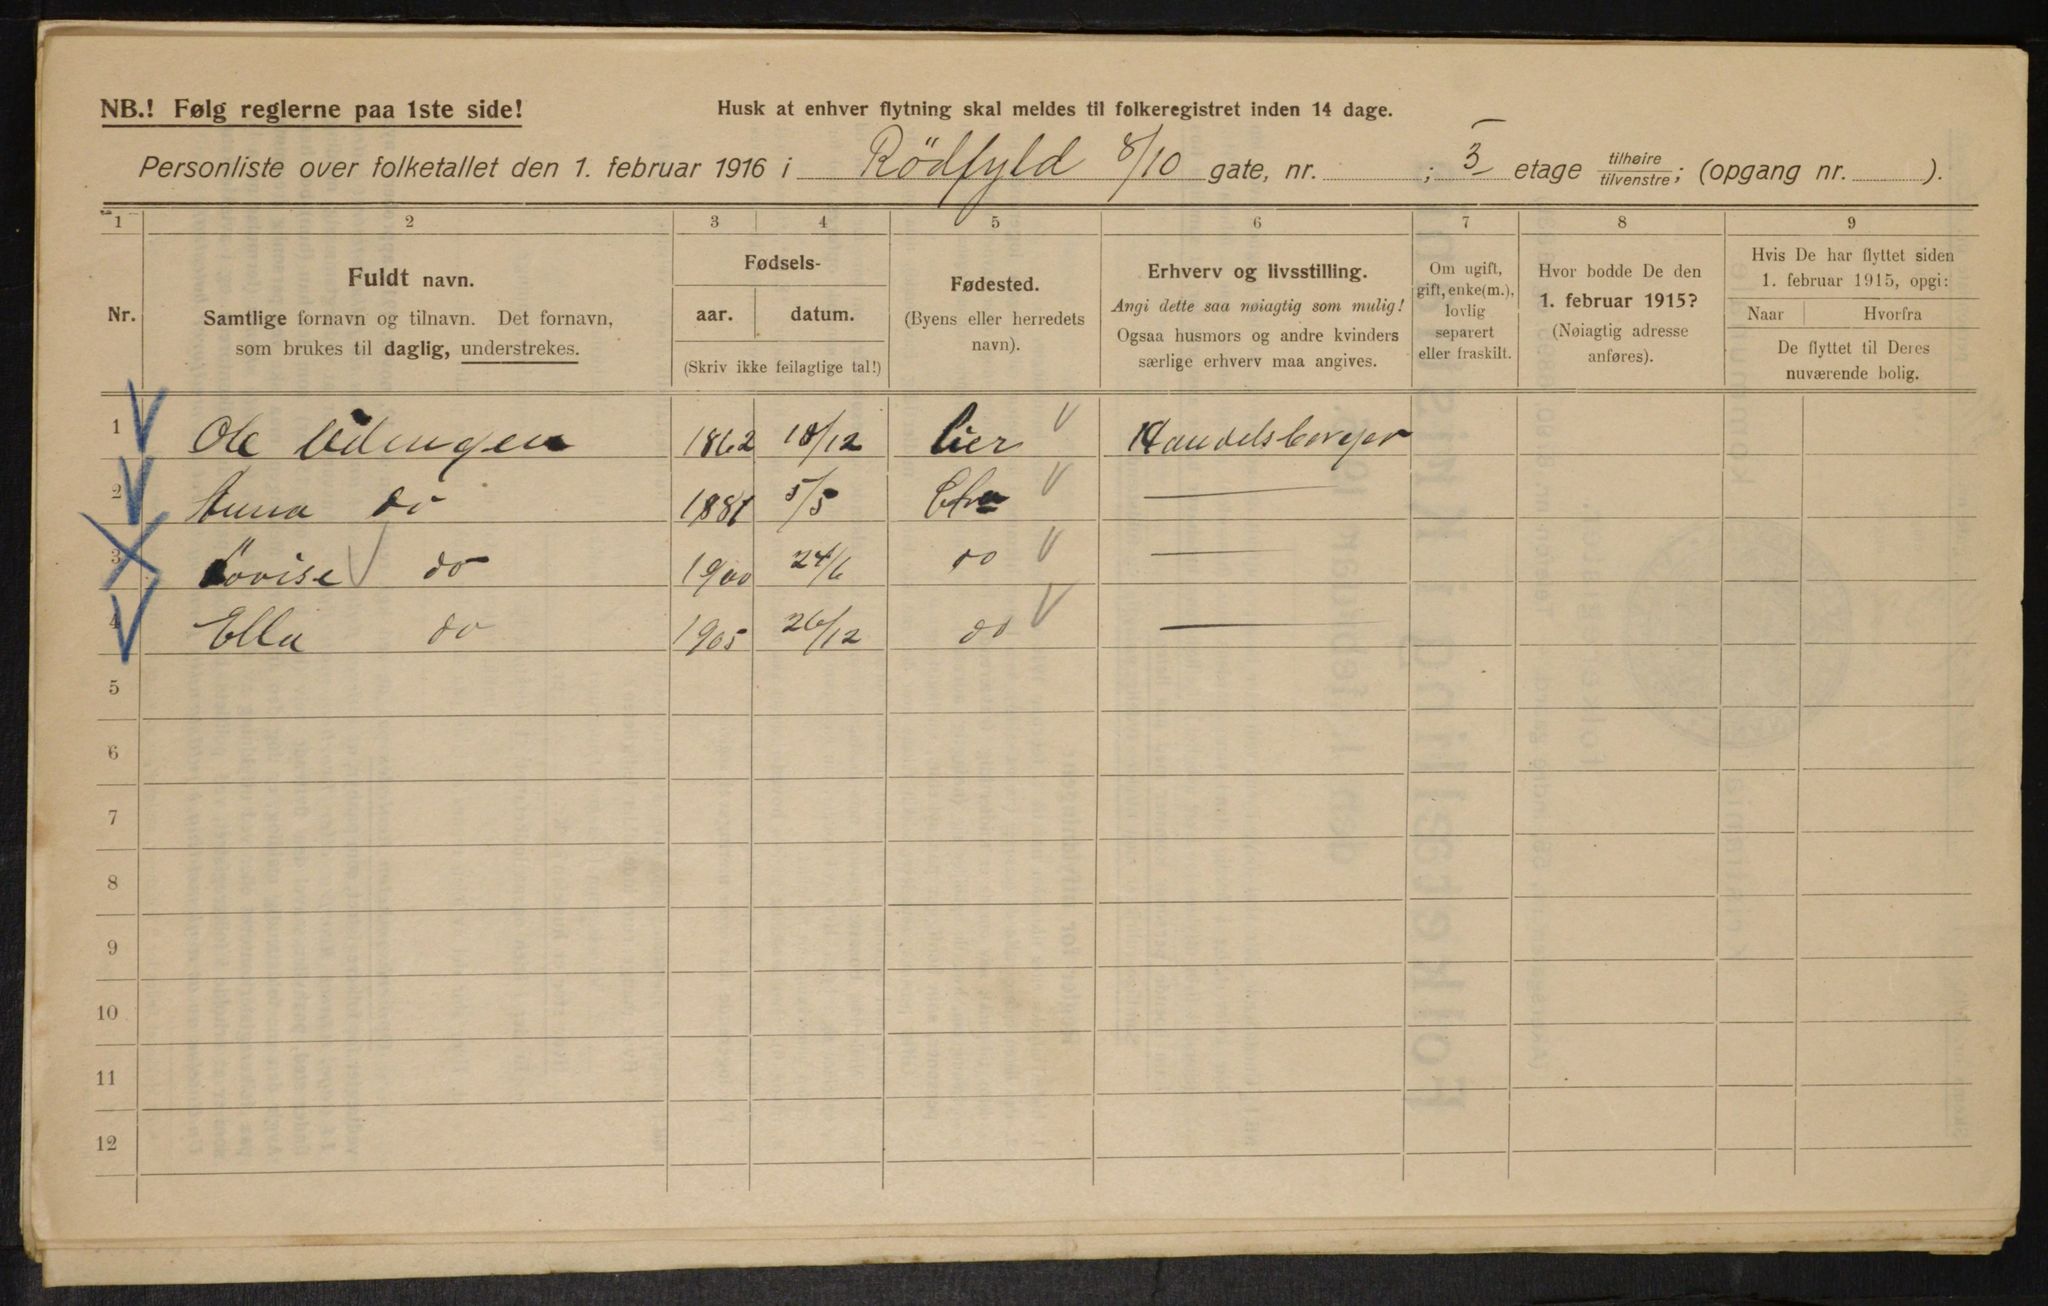 NB.! Følg reglerne paa 1ste side!
Husk at enhver flytning skal meldes til folkeregistret inden 14 dage.
Personliste over folketallet den 1. februar 1916 i Rödfyld 8/10 gate, nr. ; 3 etage tilhøire tilvenstre; (opgang nr. ).
1 2 3 4 5 6 7 8 9
Nr.
Fuldt navn.
Samtlige fornavn og tilnavn. Det fornavn,
som brukes til daglig, understrekes.
Fødsels-
aar. datum.
(Skriv ikke feilagtige tal!)
Fødested.
(Byens eller herredets
navn).
Erhverv og livsstilling.
Angi dette saa nøiagtig som mulig!
Ogsaa husmors og andre kvinders
særlige erhverv maa angives.
Om ugift,
gift, enke(m.),
lovlig
separert
eller fraskilt.
Hvor bodde De den
1. februar 1915?
(Nøiagtig adresse
anføres).
Hvis De har flyttet siden
1. februar 1915, opgi:
Naar Hvorfra
De flyttet til Deres
nuværende bolig.
1 Ole 1862 18/12 Lier Handelsborger
2 Anna do 1881 5/5 Chra
3 Lovise do 1900 24/6 do
4 Ella do 1905 26/12 do
5
6
7
8
9
10
11
12